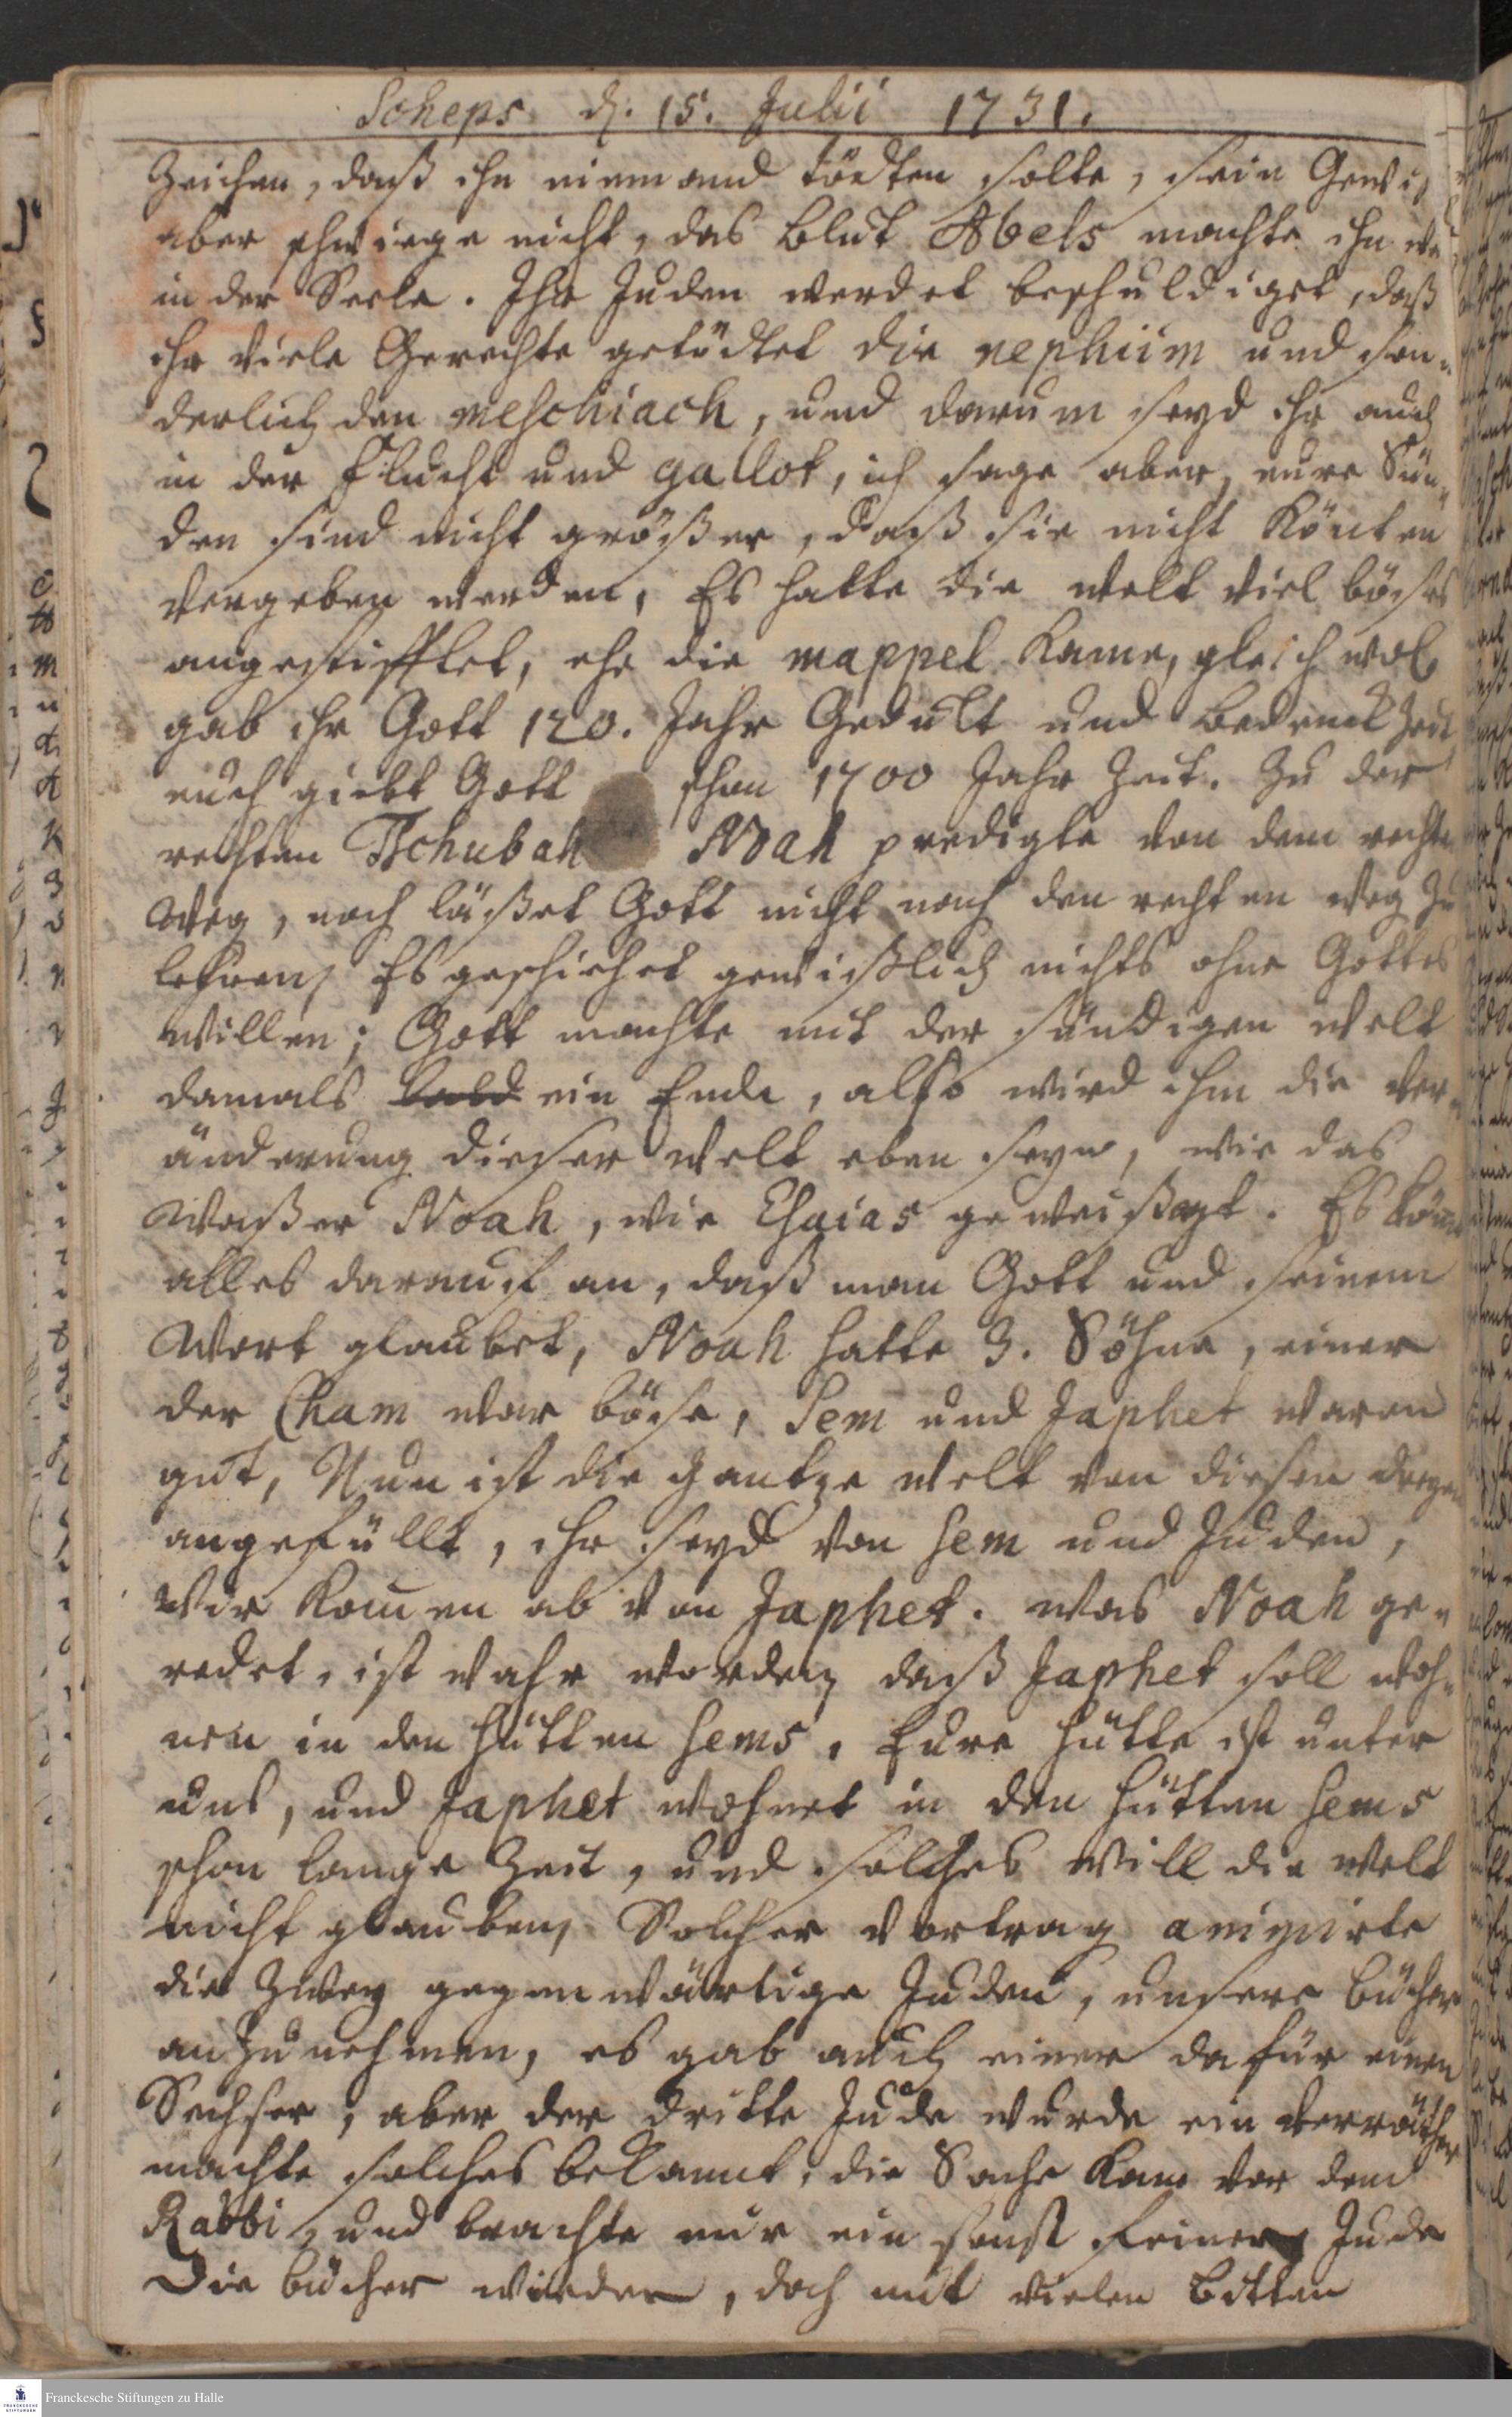 Scheps d. 15. Julii 1731.
Zeichen, daß ihn niemand tödten solte, sein Gewis
aber schwiege nicht, das Blut Abels machte ihn
in der Seele. Ihr Juden werdet beschuldiget, daß
ihr viele Gerechte getödtet die nephiim und son-
derlich den meschiach, und darum seyd ihr auch
in der Flucht und gallot, ich sage aber, eure Sün-
den sind nicht größer, daß sie nicht könten
vergeben werden, Es hatte die Welt viel böses
angestifftet, ehe die mappel kame, gleichwol
gab ihr Gott 120. Jahr Gedult und Bedenckzeit
euch giebt Gott schon 1700 Jahr Zeit. Zu der
rechten Tschubah Noah predigte von dem rechte
Weg, noch läßet Gott nicht nach den rechten Weg zu
lehren, Es geschiehet gewißlich nichts ohne Gottes
Willen; Gott machte mit der sündigen Welt
damals bald ein Ende, also wird ihm die Ver-
änderung dieser Welt eben seyn, wie das
Waßer Noah, wie Esaias geweißagt. Es
alles darauf an, daß man Gott und seinem
Wort glaubet, Noah hatte 3. Söhne, einer
der Cham war böse, Sem und Japhet waren
gut, Nun ist die gantze Welt von diesen dreyen
angefüllt, ihr seyd von Sem und Juden,
Wir komen ab von Japhet. was Noah ge-
redet, ist wahr worden, daß Japhet soll woh-
nen in den Hütten Sems, Eure Hütte ist unter
uns, und Japhet wohnet in den Hütten Sems
schon lange Zeit, und solches will die Welt
nicht glauben, Solcher Vortrag animirte
die zwey gegenwärtige Juden, unsere Bücher
anzunehmen, es gab auch einer dafür einen
Sechser, aber der dritte Jude wurde ein Verräther
machte solches bekannt, die Sache kam vor dem
Rabbi, und brachte mir ein sonst feiner Jude
Die Bücher wieder, doch mit vielen Bitten
Franckesche Stiftungen zu Halle